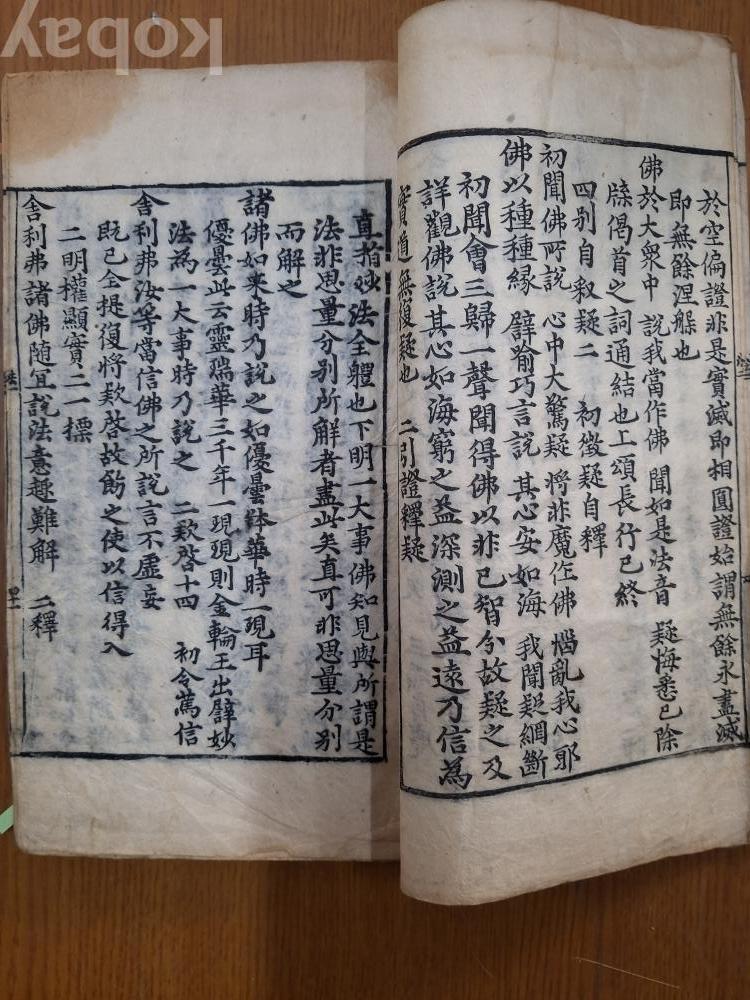 kobay
於空偏證非是實滅即相圓證始謂無餘永盡滅
即無餘涅槃也
佛於大衆中 說我當作佛 聞如是法音 疑悔悉已除
牒偈首之詞通結也上頌長行已終
四別自叙疑二 初徵疑自釋
初聞佛所說 心中大驚疑 將非魔作佛 惱亂我心耶
佛以種種緣 譬喻巧言說 其心安如海 我聞疑網斷
初聞會三歸一聲聞得佛以非已智分故疑之及
詳觀佛說其心如海窮之益深測之益遠乃信為
實道無復疑也 二引證釋疑
直指妙法全體也下明一大事佛知見與所謂是
法非思量分別所解者盡此矣直可非思量分別
而解之
諸佛如來時乃說之如優曇鉢華時一現耳
優曇此云靈瑞華三千年一現現則金輪王出譬妙
法為一大事時乃說之 二歎啓十四 初令薦信
舍利弗汝等當信佛之所說言不虛妄
既已全提復將歎啓故飭之使以信得入
二明權顯實二一摽
舍利弗諸佛隨宜說法意趣難解 二釋